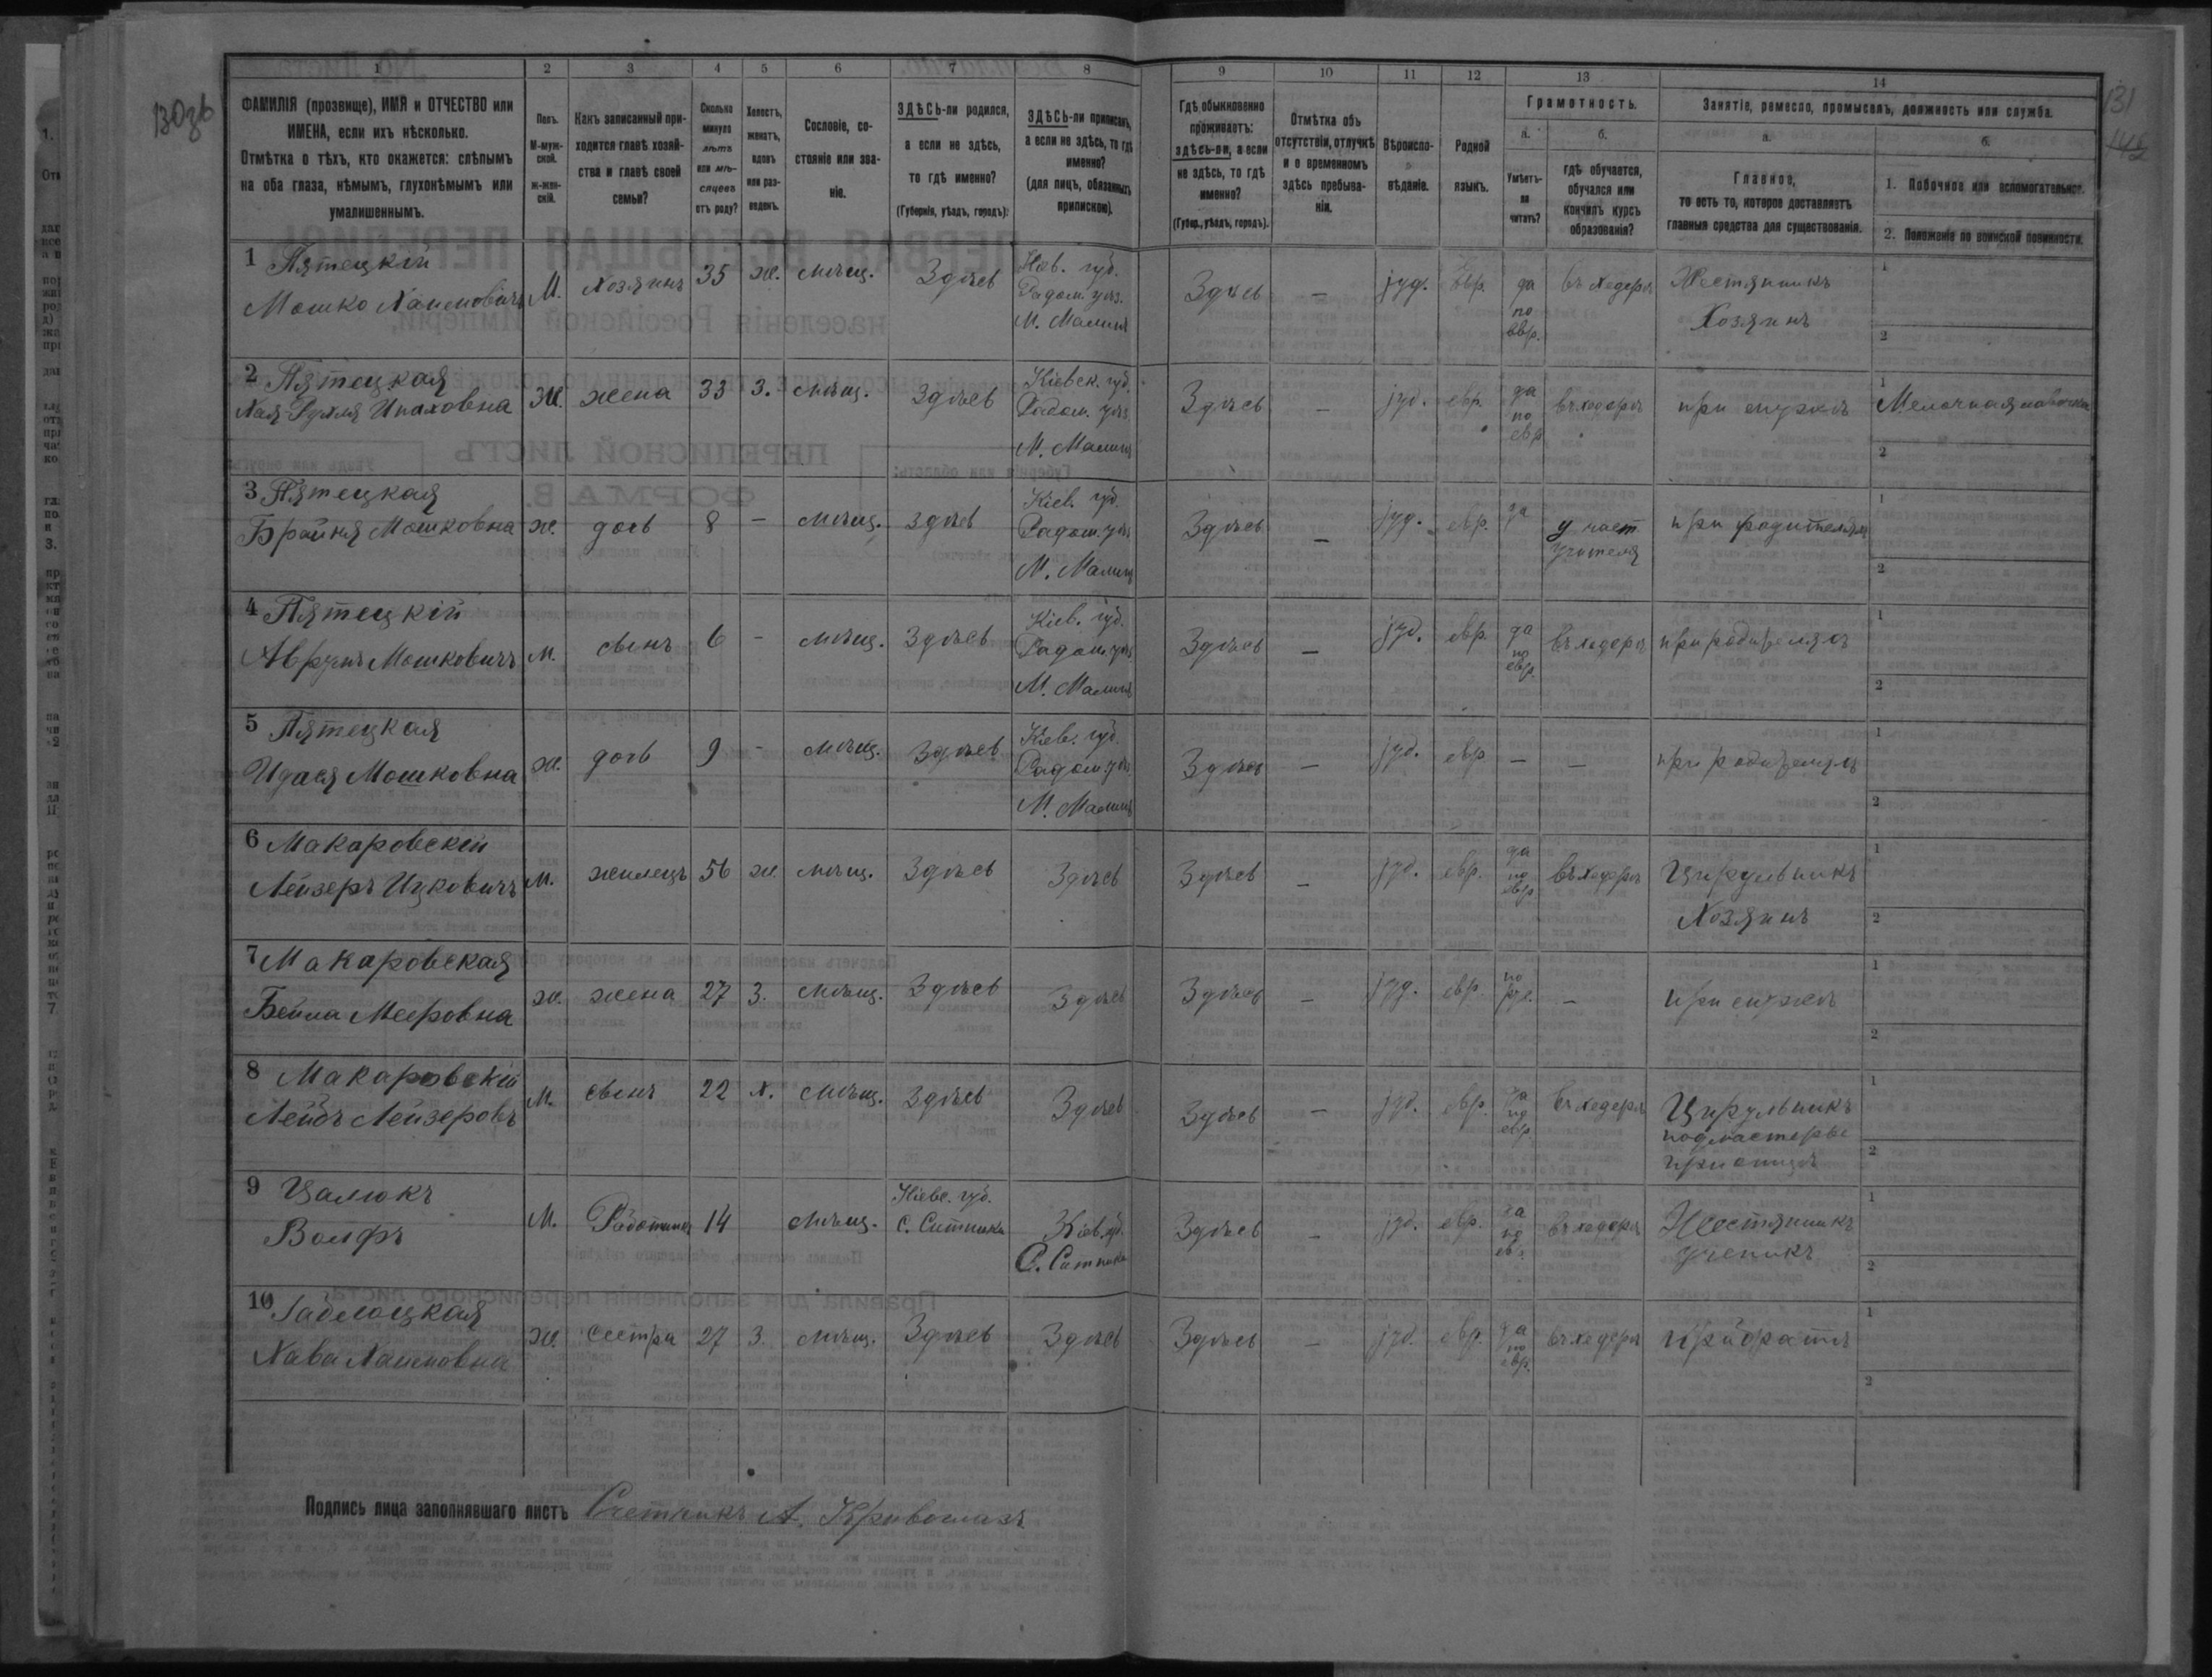 130зв
131
145
1 2 3 4 5 6 7 8 9 10 11 12 13 14
ФАМИЛІЯ (прозвище), ИМЯ и ОТЧЕСТВО или
ИМЕНА, если ихъ нѣсколько.
Отмѣтка о тѣхъ, кто окажется: слѣпымъ
на оба глаза, нѣмымъ, глухонѣмымъ или
умалишеннымъ.
Полъ.
М-муж-
ской.
ж-жен-
скій.
Какъ записанный при-
ходится главѣ хозяй-
ства и главѣ своей
семьи?
Сколько
минуло
лѣтъ
или мѣ-
сяцевъ
отъ роду?
Холостъ,
женатъ,
вдовъ
или раз-
веденъ.
Сословіе, со-
стояніе или зва-
ніе.
ЗДѢСЬ-ли родился,
а если не здѣсь,
то гдѣ именно?
(Губернія, уѣздъ, городъ).
ЗДѢСЬ-ли приписанъ,
а если не здѣсь, то гдѣ
именно?
(для лицъ, обязанныхъ
припискою).
Гдѣ обыкновенно
проживаетъ:
здѣсь-ли, а если
не здѣсь, то гдѣ
именно?
(Губер., уѣздъ, городъ).
Отмѣтка объ
отсутствіи, отлучкѣ
и о временномъ
здѣсь пребыва-
ніи.
Вѣроиспо-
вѣданіе.
Родной
языкъ.
Грамотность.
а.
Умѣетъ-
ли
читать?
б.
гдѣ обучается,
обучался или
кончилъ курсъ
образованія?
Занятіе, ремесло, промыселъ, должность или служба.
а.
Главное,
то есть то, которое доставляетъ
главныя средства для существованія.
б.
1. Побочное или вспомогательное.
2. Положеніе по воинской повинности.
1 Пятецкій
Мошко Хаимовичъ М. Хозяинъ 35 ж. мѣщ. Здѣсь
Кіев. губ.
Радом. уѣз.
М. Малинъ
Здѣсь — іуд. евр. да
по
евр.
въ хедерѣ Жестянникъ
Хозяинъ
1
2
2 Пятецкая
Хая-Рухля Ицковна Ж. жена 33 З. мѣщ. Здѣсь
Кіевск. губ.
Радом. уѣз.
М. Малинъ
Здѣсь — іуд. евр. да
по
евр.
въ хедерѣ при мужѣ
1 Мелочная лавочка
2
3 Пятецкая
Брайна Мошковна ж. дочь 8 — мѣщ. Здѣсь
Кіев. губ.
Радом. уѣз.
М. Малинъ
Здѣсь — іуд. евр. да у част
учителя
при родителяхъ
1
2
4 Пятецкій
Аврумъ Мошковичъ м. сынъ 6 — мѣщ. Здѣсь
Кіев. губ.
Радом. уѣз.
М. Малинъ
Здѣсь — іуд. евр. да
по
евр.
въ хедерѣ при родителяхъ
1
2
5 Пятецкая
Идася Мошковна ж. дочь 9 — мѣщ. Здѣсь
Кіев. губ.
Радом. уѣз.
М. Малинъ
Здѣсь — іуд. евр — — при родителяхъ
1
2
6 Макаровскій
Лейзеръ Ицковичъ М. жилецъ 56 ж. мѣщ. Здѣсь Здѣсь Здѣсь — іуд. евр. да
по
евр
въ хедерѣ Цирульникъ
Хозяинъ
1
2
7 Макаровская
Бейла Мееровна ж. жена 27 З. мѣщ. Здѣсь Здѣсь Здѣсь — іуд. евр. по
рус.
— при мужѣ
1
2
8 Макаровскій
Лейбъ Лейзеровъ М. сынъ 22 х. мѣщ. Здѣсь Здѣсь Здѣсь — іуд. евр. да
по
евр.
въ хедерѣ Цирульникъ
подмастерье
при отцѣ
1
2
9 Цалюкъ
Волфъ М. Работникъ 14 мѣщ.
Кіевс. губ.
С. Ситники
Кіев. губ.
С. Ситники
Здѣсь — іуд. евр. да
по
евр.
въ хедерѣ Жестянникъ
ученикъ
1
2
10
Хава Хаимовна ж. сестра 27 З. мѣщ. Здѣсь Здѣсь Здѣсь — іуд. евр. да
по
евр.
въ хедерѣ при братѣ
1
2
Подпись лица заполнявшаго листъ Счетчикъ А.